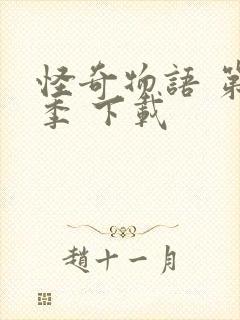 怪奇物語 第
季 下載
趙十一月